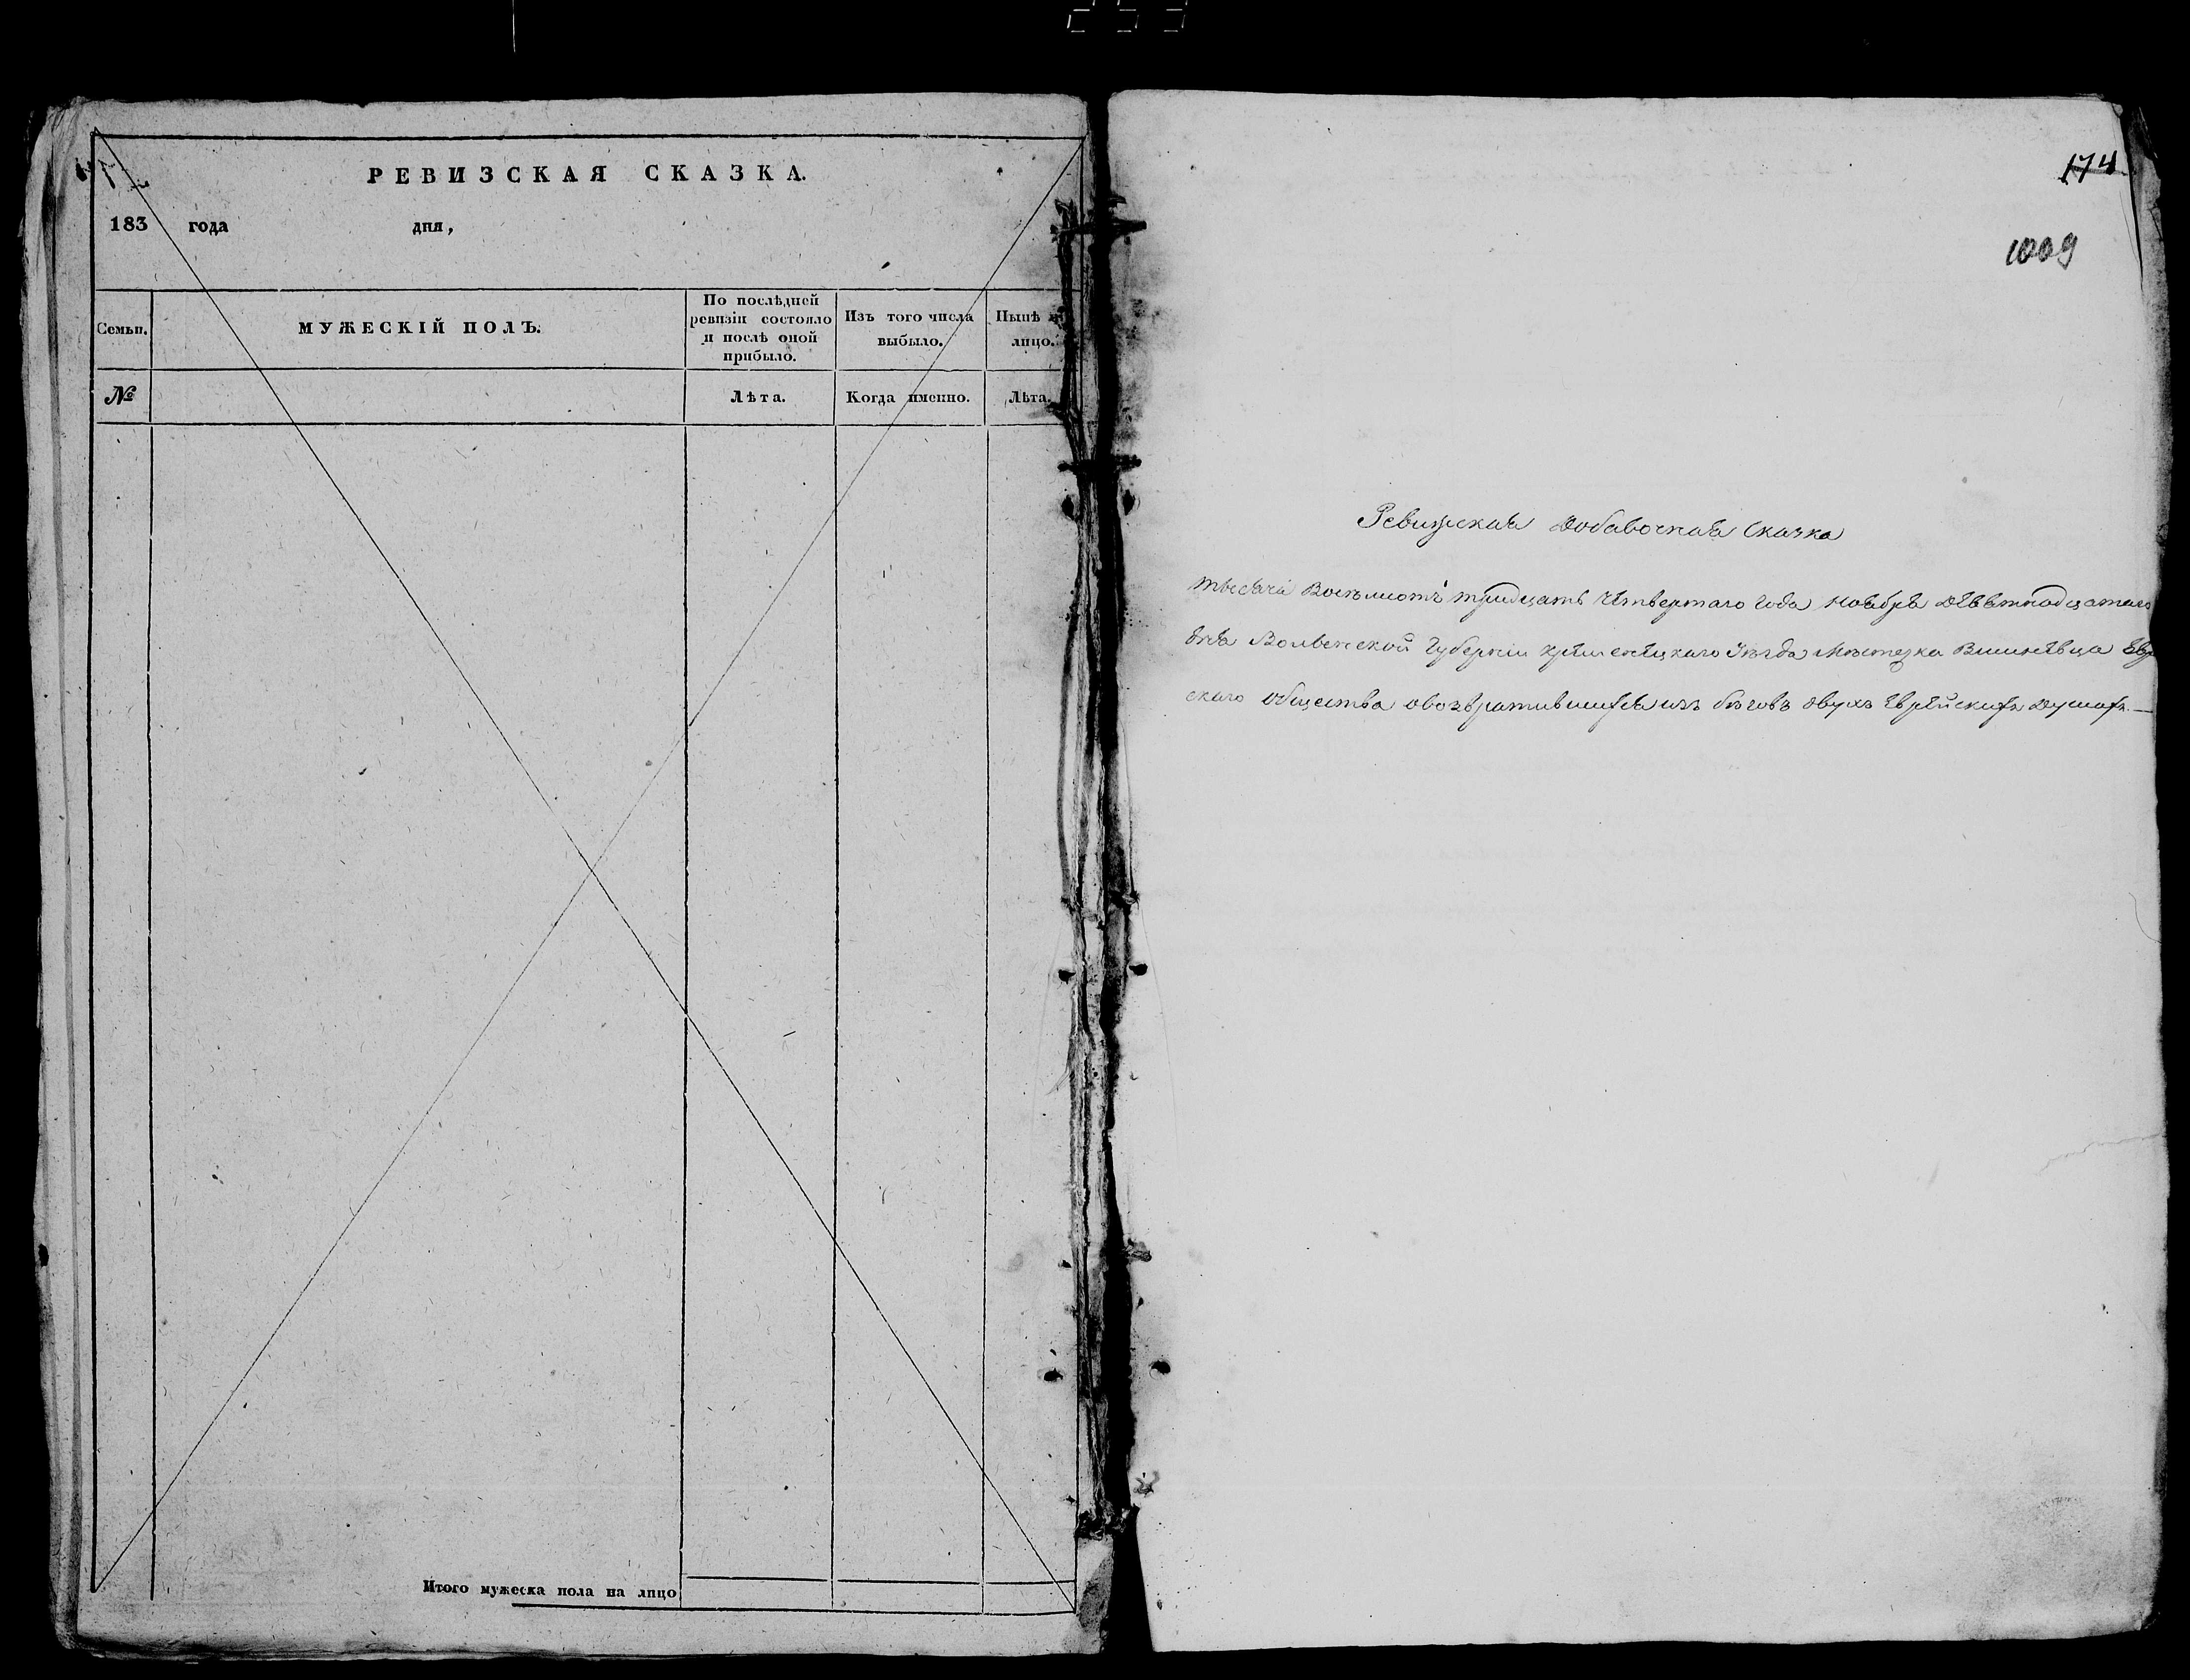 РЕВИЗСКАЯ СКАЗКА.
183 года дня,
Семьи.
МУЖЕСКІЙ ПОЛЪ.
По послѣдней
ревизіи состояло
и послѣ оной
прибыло.
Изъ того числа
выбыло.
Нынѣ на
лицо.
№
Лѣта.
Когда именно.
Лѣта.
Итого мужеска пола на лицо
174
1009
Ревижская Добавочная Сказка
тысяча Восемьсотъ тридцать Четвертаго Года Ноября Девятнадцатаго
дня Волынской Губерніи Кременецкаго Уѣзда Мѣстечка Вишневца Евр
скаго Общества овозвратившихся изъ бѣговъ двухъ Еврейскихъ Душахъ.—